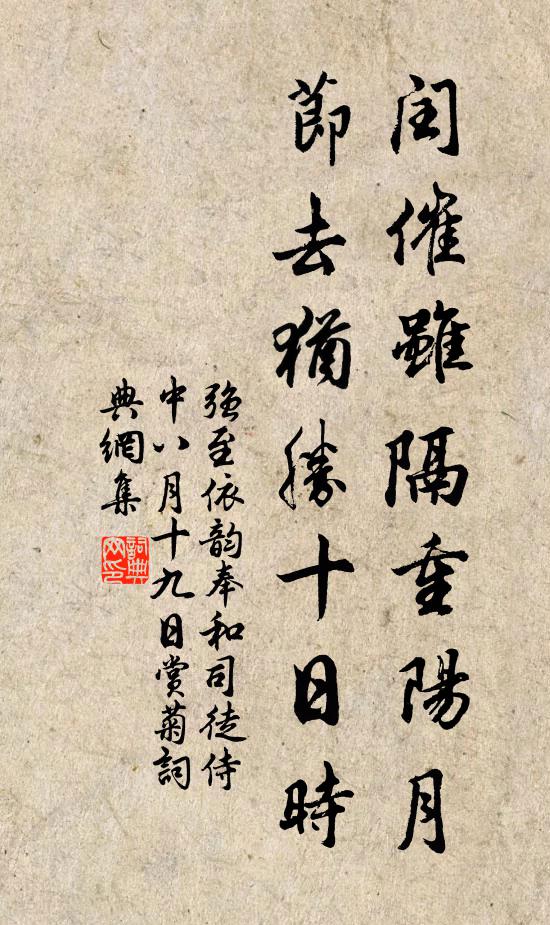 闰催雖隔重陽月
莭去猶勝十日時
強至依韵奉和司徒侍
中八月十九日賞菊詞
典網集
詞典
网印